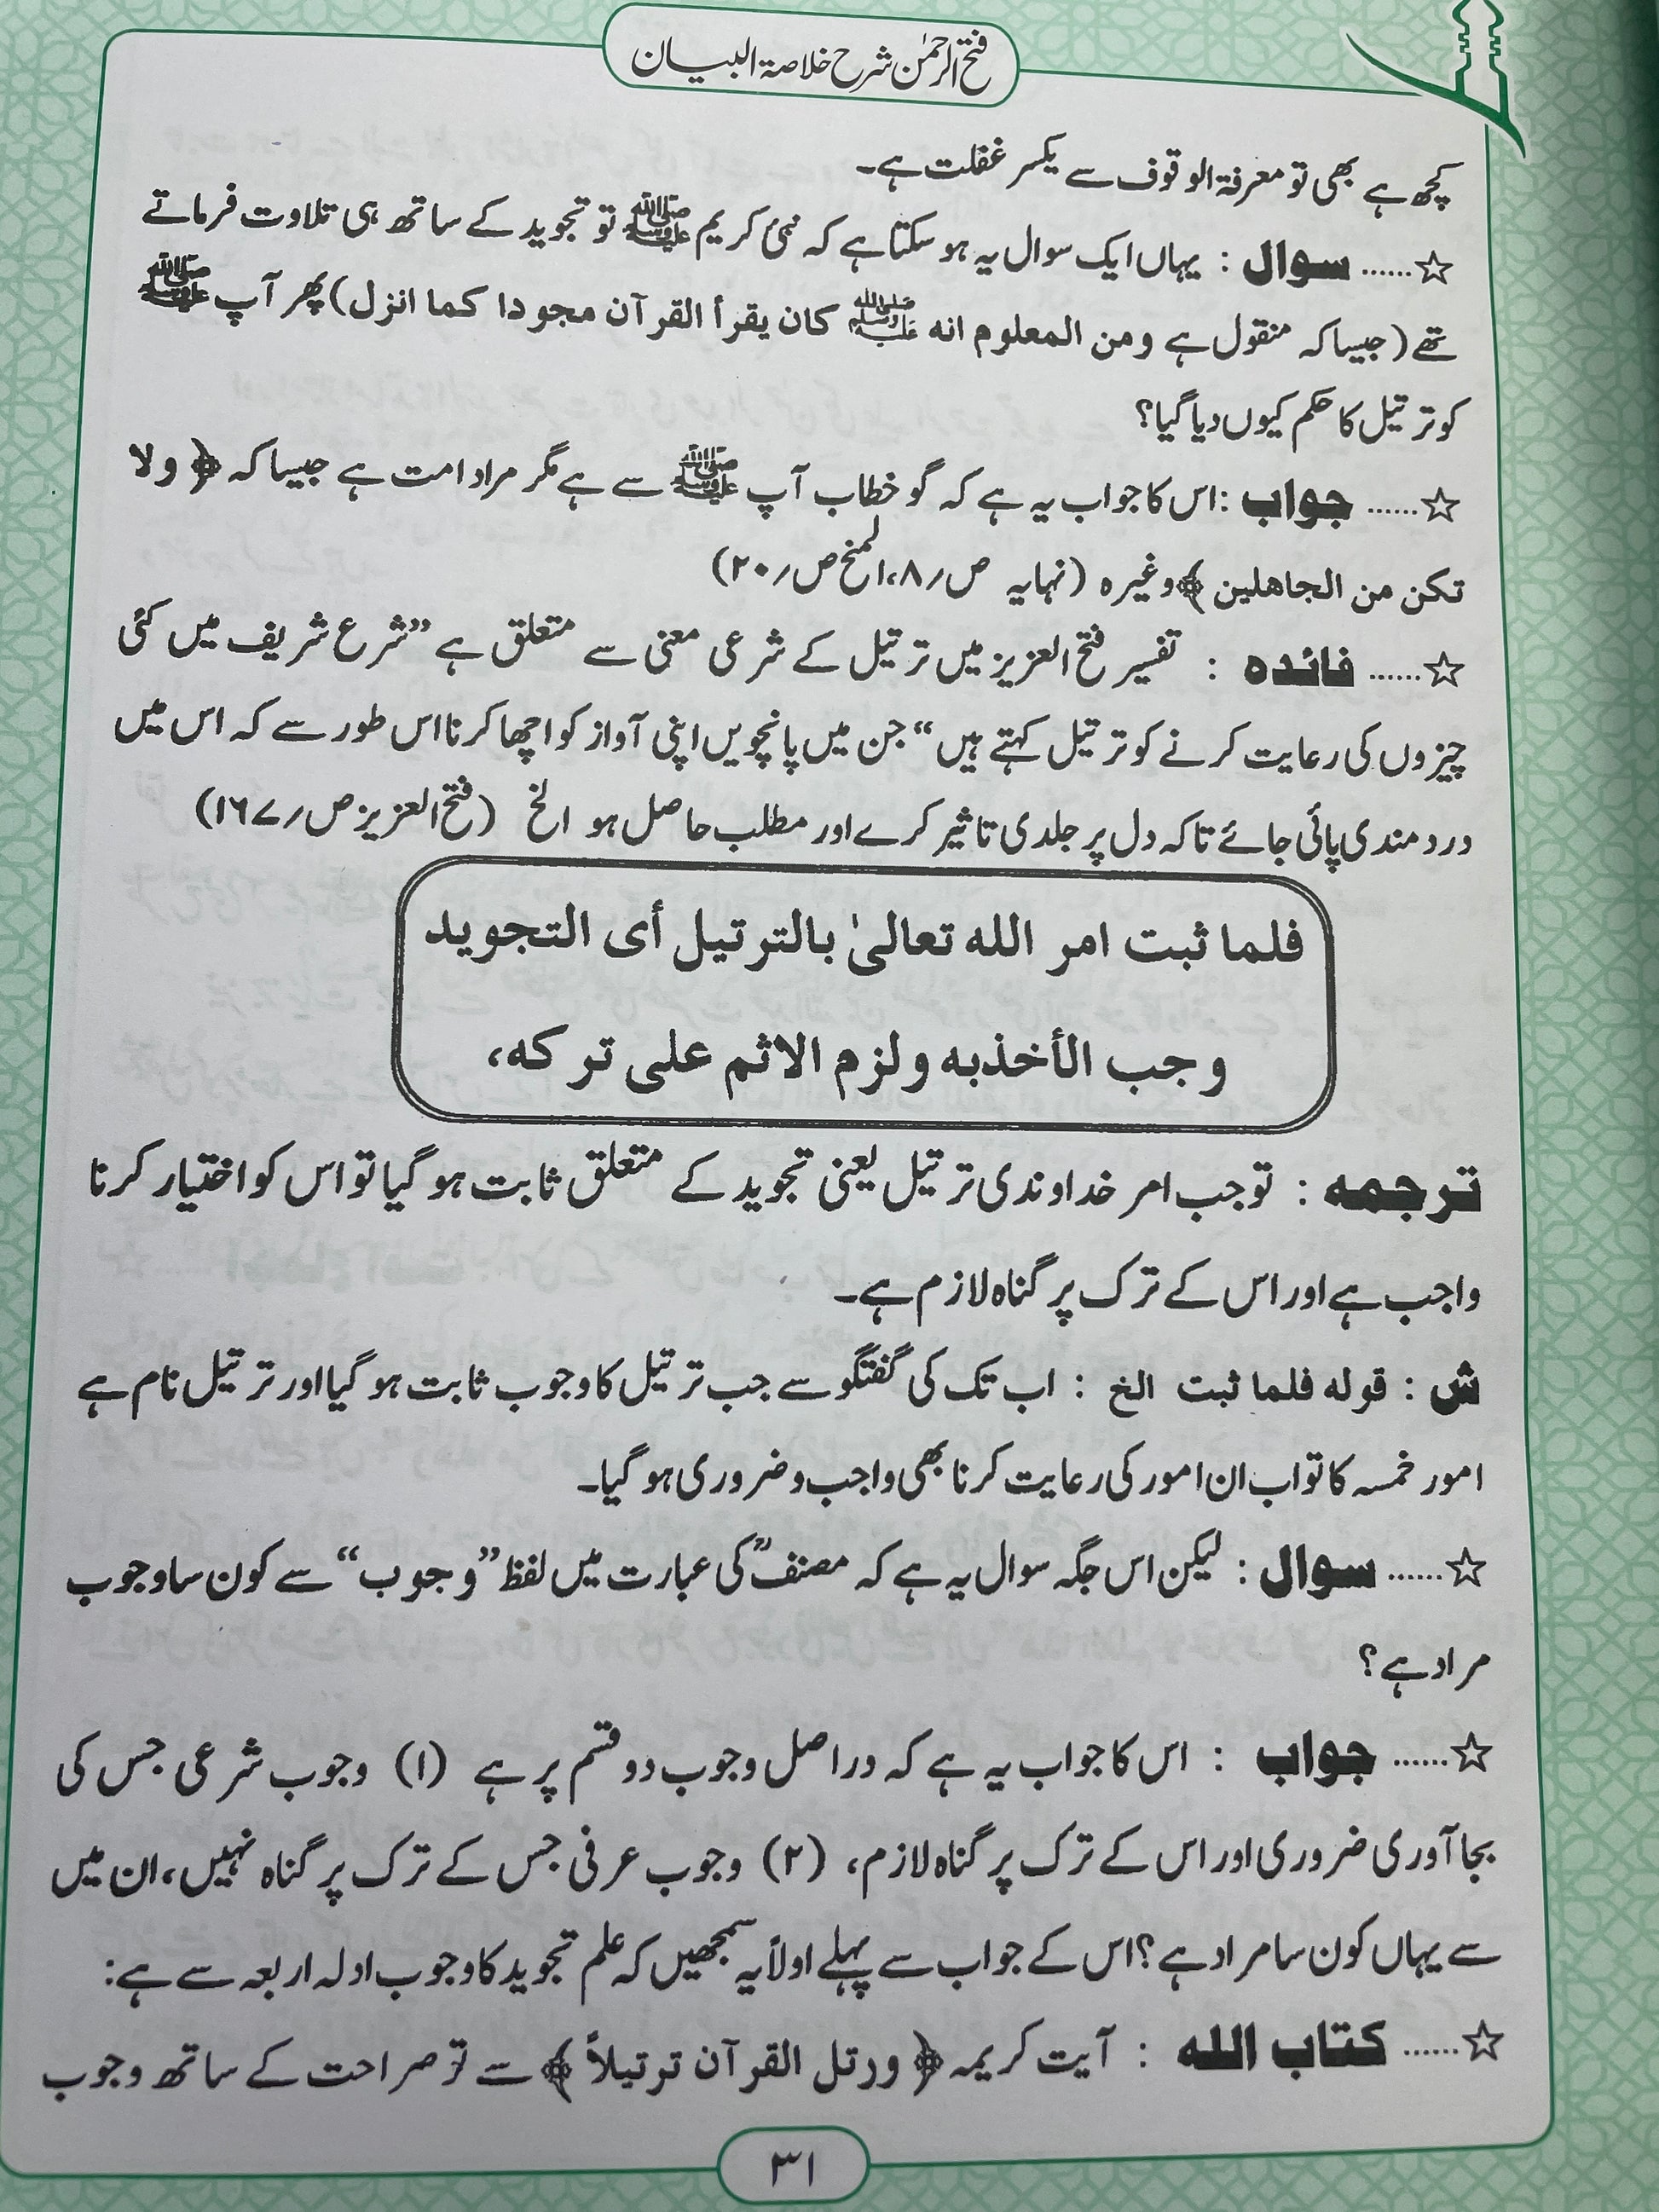 فتح الرحمٰن شرح خلاصۃ البیان
کچھ ہے بھی تو معرفۃ الوقوف سے یکسر غفلت ہے۔
☆...... سوال : یہاں ایک سوال یہ ہو سکتا ہے کہ نبی کریم ﷺ تو تجوید کے ساتھ ہی تلاوت فرماتے
تھے (جیسا کہ منقول ہے ومن المعلوم انه ﷺ كان يقرأ القرآن مجودا كما انزل) پھر آپ ﷺ
کو ترتیل کا حکم کیوں دیا گیا؟
☆...... جواب : اس کا جواب یہ ہے کہ گو خطاب آپ ﷺ سے ہے مگر مراد امت ہے جیسا کہ ﴿ ولا
تكن من الجاهلين ﴾ وغیرہ (نہایہ ص/۸، المنح ص/۲۰)
☆...... فائدہ : تفسیر فتح العزیز میں ترتیل کے شرعی معنی سے متعلق ہے ”شرع شریف میں کئی
چیزوں کی رعایت کرنے کو ترتیل کہتے ہیں“ جن میں پانچویں اپنی آواز کو اچھا کرنا اس طور سے کہ اس میں
درد مندی پائی جائے تاکہ دل پر جلدی تاثیر کرے اور مطلب حاصل ہو الخ (فتح العزیز ص/۱۶۷)
فلما ثبت امر الله تعالىٰ بالترتيل أى التجويد
وجب الأخذبه ولزم الاثم على تركه،
ترجمہ : تو جب امر خداوندی ترتیل یعنی تجوید کے متعلق ثابت ہو گیا تو اس کو اختیار کرنا
واجب ہے اور اس کے ترک پر گناہ لازم ہے۔
ش : قوله فلما ثبت الخ : اب تک کی گفتگو سے جب ترتیل کا وجوب ثابت ہو گیا اور ترتیل نام ہے
امور خمسہ کا تو اب ان امور کی رعایت کرنا بھی واجب و ضروری ہو گیا۔
☆...... سوال : لیکن اس جگہ سوال یہ ہے کہ مصنفؒ کی عبارت میں لفظ ”وجوب“ سے کون سا وجوب
مراد ہے؟
☆...... جواب : اس کا جواب یہ ہے کہ در اصل وجوب دو قسم پر ہے (۱) وجوب شرعی جس کی
بجا آوری ضروری اور اس کے ترک پر گناہ لازم، (۲) وجوب عرفی جس کے ترک پر گناہ نہیں، ان میں
سے یہاں کون سا مراد ہے؟ اس کے جواب سے پہلے اولاً یہ سمجھیں کہ علم تجوید کا وجوب ادلہ اربعہ سے ہے:
☆...... کتاب اللہ : آیت کریمہ ﴿ ورتل القرآن ترتيلاً ﴾ سے تو صراحت کے ساتھ وجوب
۳۱